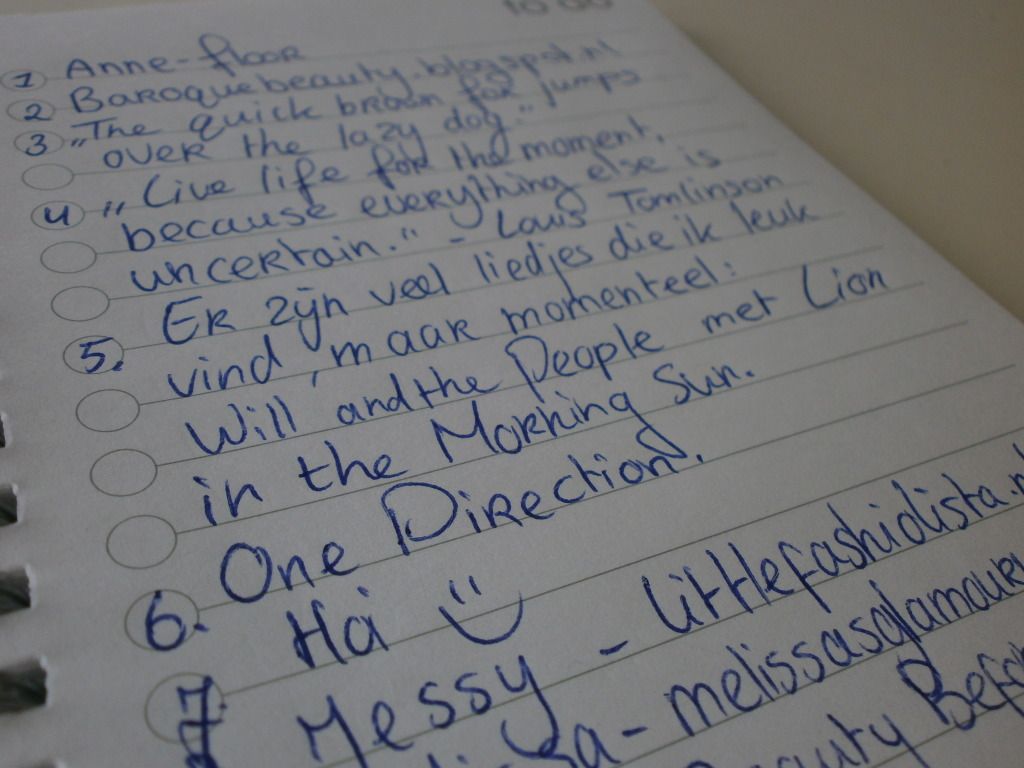 1 Anne-floor
2 Baroquebeauty.blogspot.nl
3 „The quick brown fox jumps
over the lazy dog."
4 „Live life for the moment,
because everything else is
uncertain." - Louis Tomlinson
5. Er zijn veel liedjes die ik leuk
vind, maar momenteel:
Will and the People met Lion
in the Morning Sun.
6. One Direction.
7 Hai
Messy - littlefashiolista.n
a - melissasglamour
Beauty